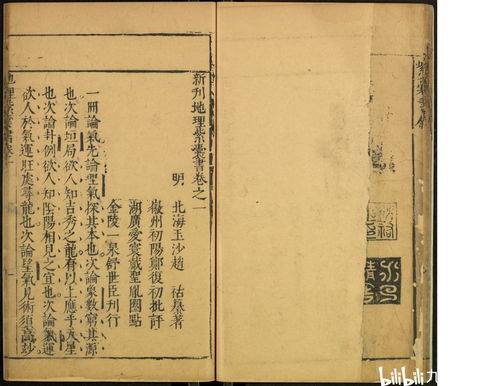 新刊地理紫囊書卷之一
明 北海玉沙趙 祜纂著
徽州初陽鄭復初批評
湖廣愛寰戴聖胤圈點
金陵一泉舒世臣刊行
一冊論氣先論聖氣探其本也次論氣數窮其源
也次論垣局欲人知吉秀之龍有以上應乎天星
也次論卦例欲人知陰陽相見之宜也次論氣運
欲人於氣運旺處尋龍也次論望氣見術須高妙
地理紫囊書卷一
bilibili 九